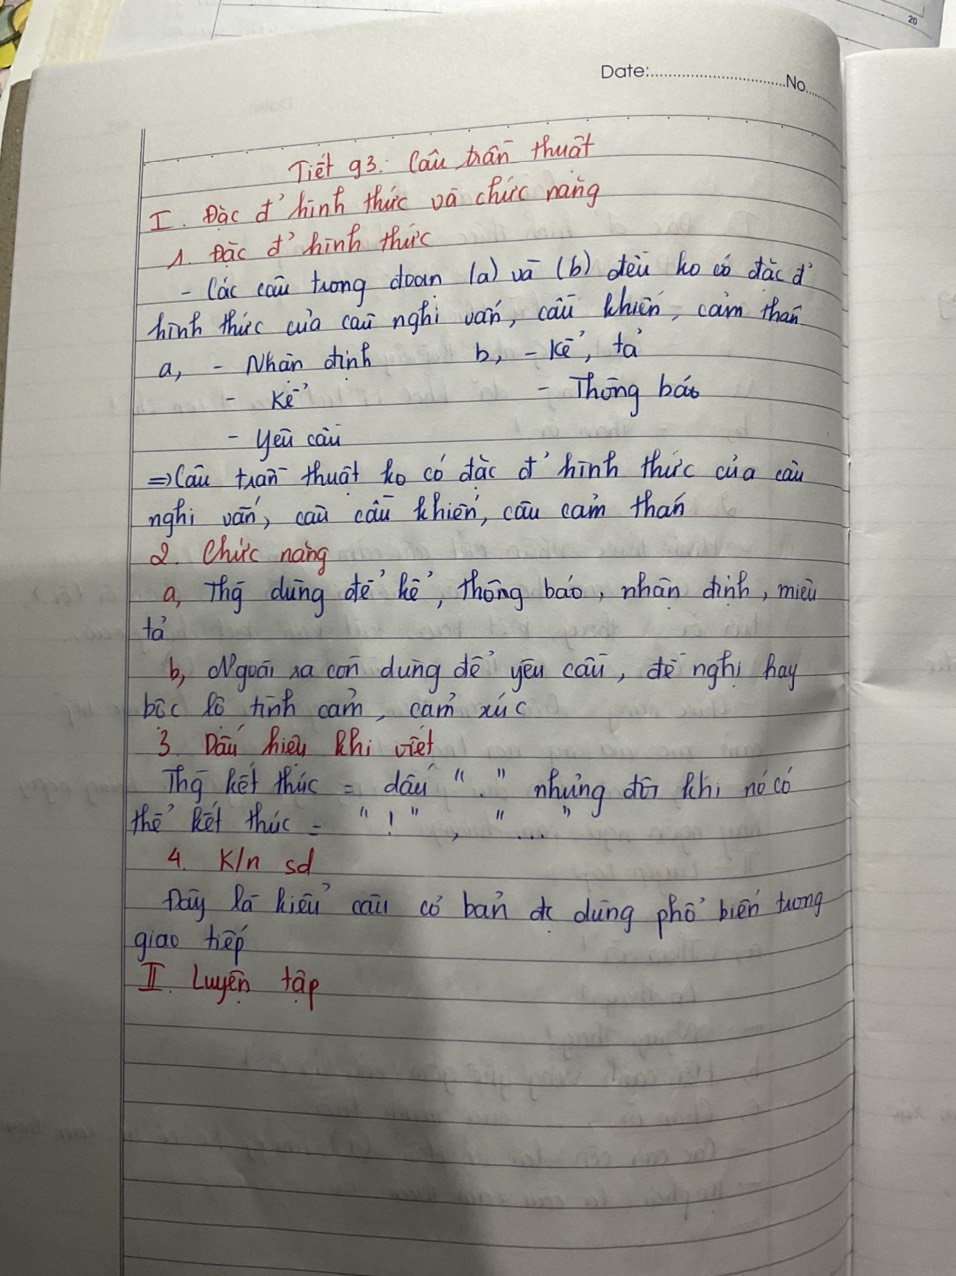 20
Date:..............................No.....
Tiết 93: Câu trần thuật
I. Đặc đ' hình thức và chức năng
1. Đặc đ' hình thức
- Các câu trong đoạn (a) và (b) đều ko có đặc đ'
hình thức của câu nghi vấn, cầu khiến, cảm thán
a, - Nhận định b, - Kể, tả
- Kể - Thông báo
- yêu cầu
=> Câu trần thuật ko có đặc đ' hình thức của câu
nghi vấn, câu cầu khiến, câu cảm thán
2. Chức năng
a, Thg dùng để kể, thông báo, nhận định, miêu
tả
b, Ngoài ra còn dùng để yêu cầu, đề nghị hay
bộc lộ tình cảm, cảm xúc
3. Dấu hiệu khi viết
Thg kết thúc = dấu " . " nhưng đôi khi nó có
thể kết thúc = " ! ", " ... "
4. K/n sd
Đây là kiểu câu cơ bản đc dùng phổ biến trong
giao tiếp
II. Luyện tập